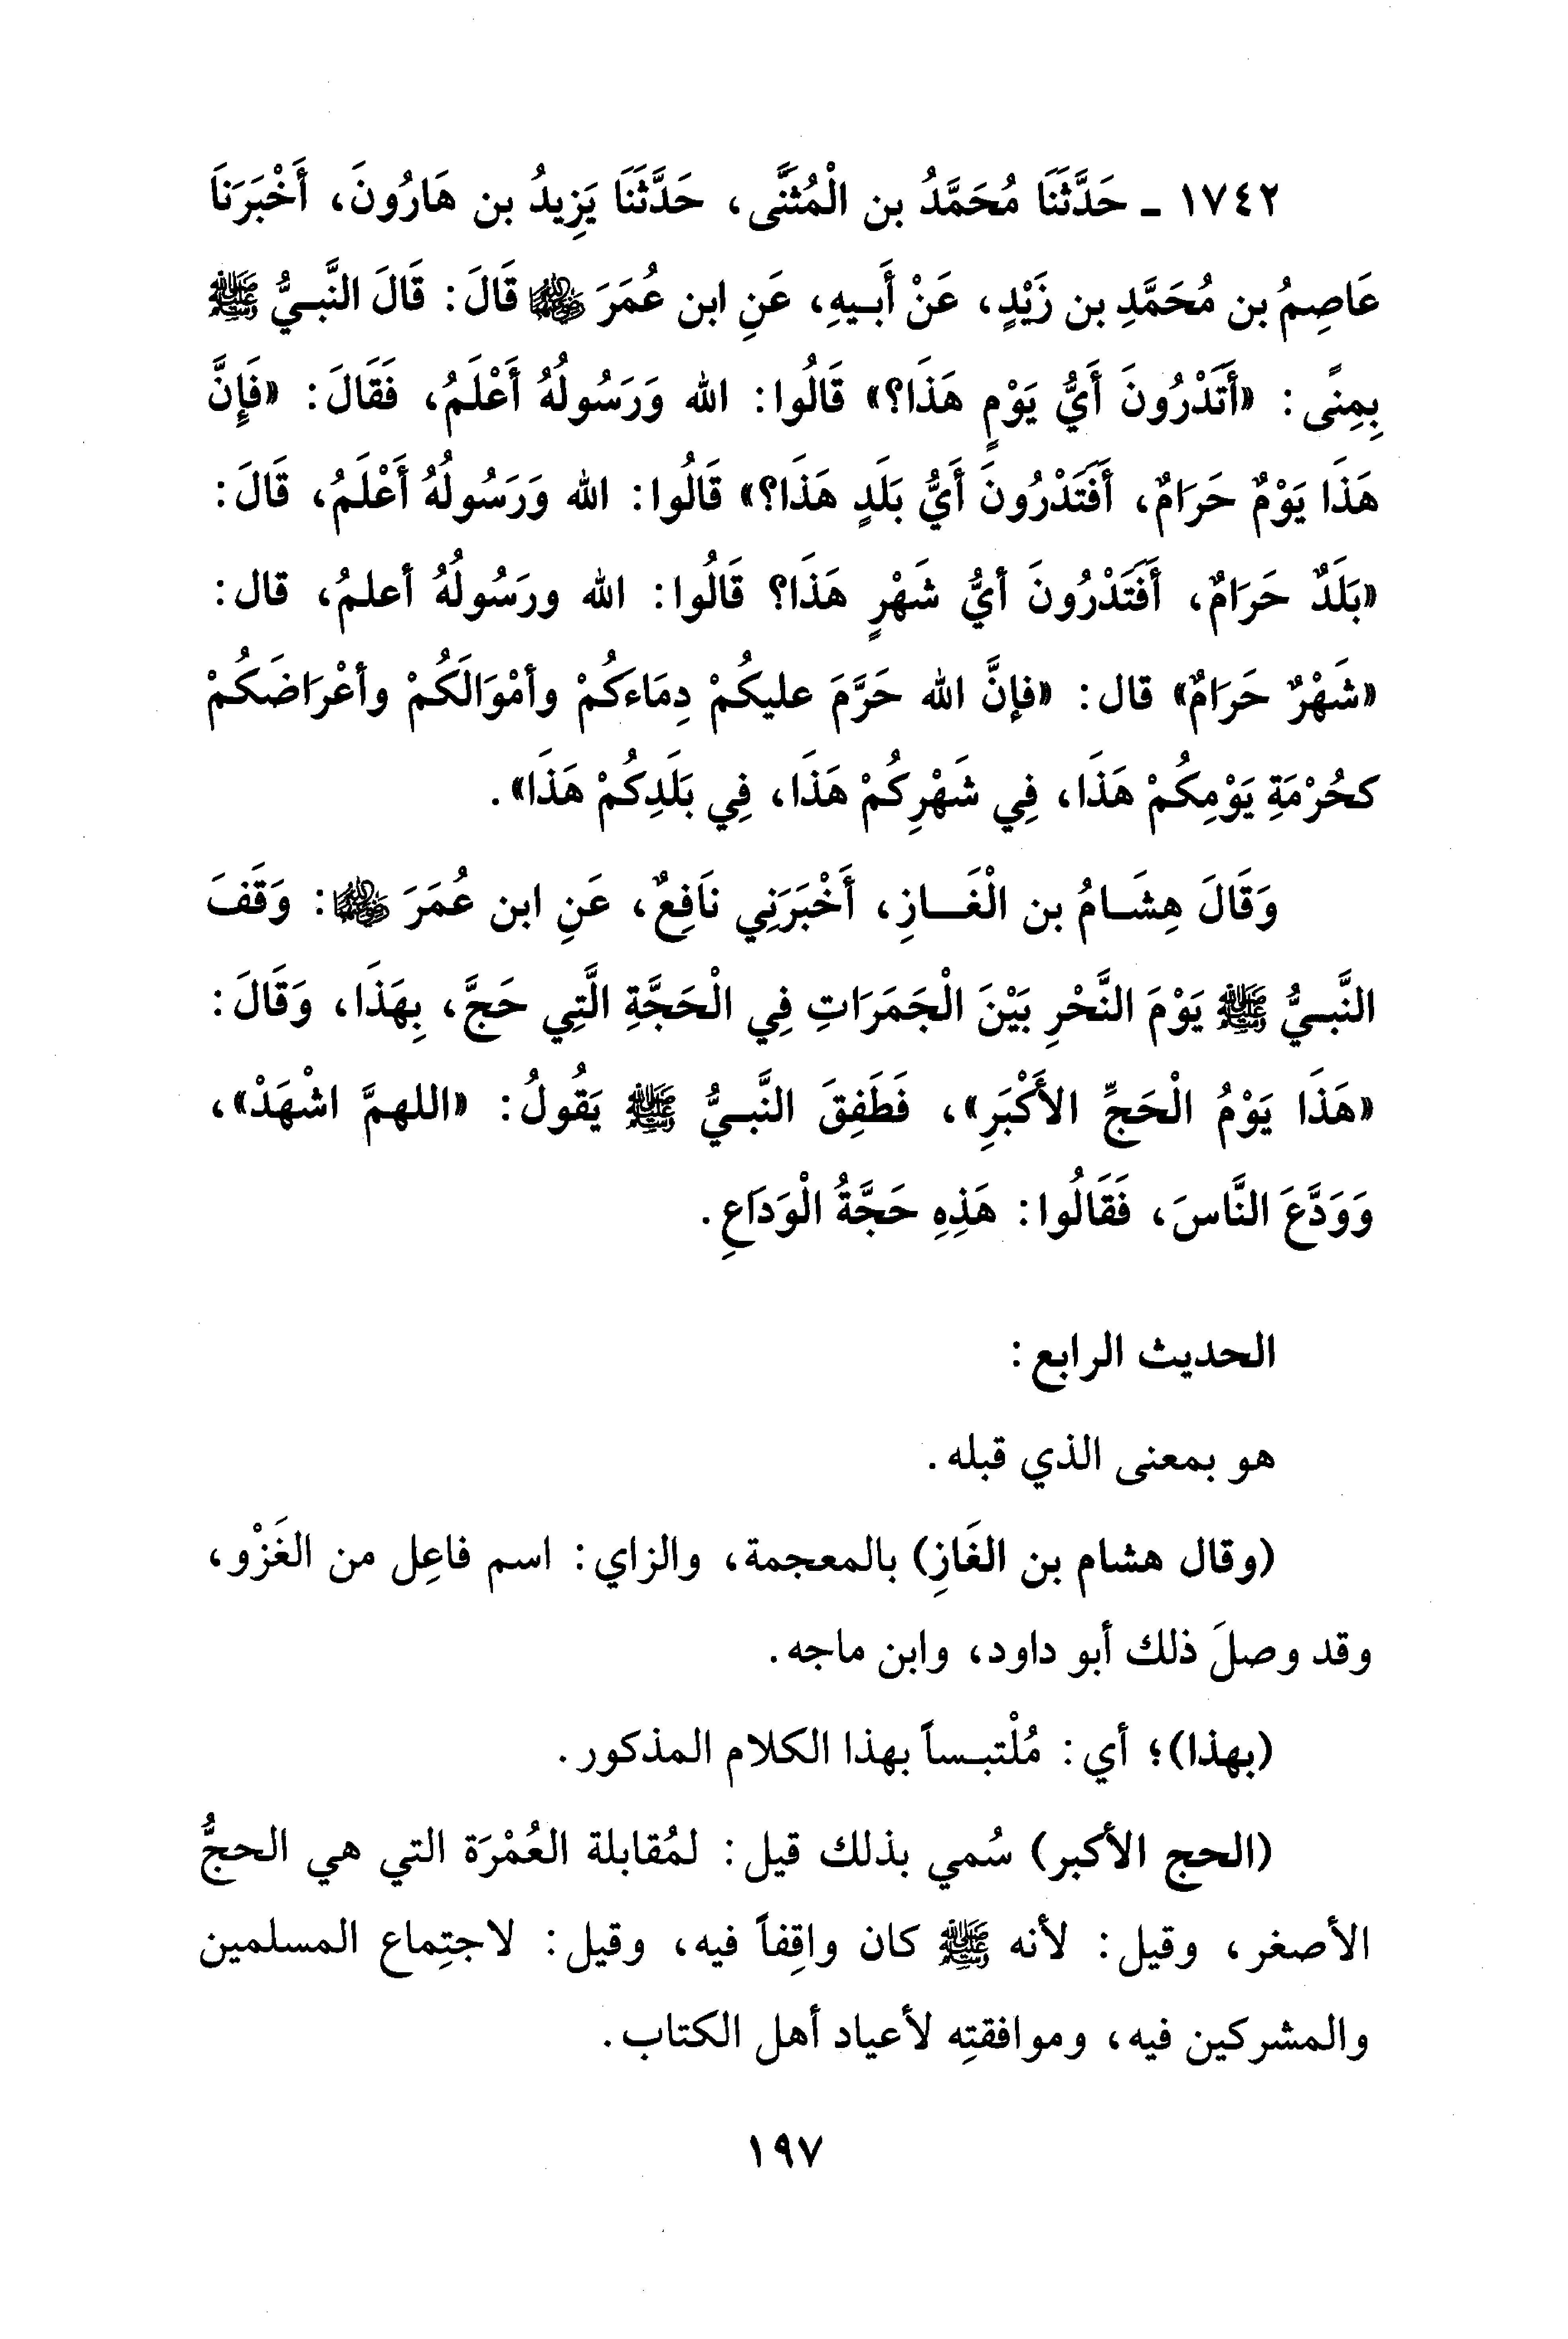 ١٧٤٢ ـ حَدَّثَنَا مُحَمَّدُ بن الْمُثَنَّى، حَدَّثَنَا يَزِيدُ بن هَارُونَ، أَخْبَرَنَا
عَاصِمُ بن مُحَمَّدِ بن زَيْدٍ، عَنْ أَبيهِ، عَنِ ابن عُمَرَ ﵄ قَالَ: قَالَ النَّبيُّ ﷺ
بِمِنًى: «أَتَدْرُونَ أَيُّ يَوْمٍ هَذَا؟» قَالُوا: الله وَرَسُولُهُ أَعْلَمُ، فَقَالَ: «فَإِنَّ
هَذَا يَوْمٌ حَرَامٌ، أَفَتَدْرُونَ أَيُّ بَلَدٍ هَذَا؟» قَالُوا: الله وَرَسُولُهُ أَعْلَمُ، قَالَ:
«بَلَدٌ حَرَامٌ، أَفَتَدْرُونَ أيُّ شَهْرٍ هَذَا؟ قَالُوا: الله ورَسُولُهُ أعلمُ، قال:
«شَهْرٌ حَرَامٌ» قال: «فإنَّ الله حَرَّمَ عليكُمْ دِمَاءَكُمْ وأمْوَالَكُمْ وأعْرَاضَكُمْ
كحُرْمَةِ يَوْمِكُمْ هَذَا، فِي شَهْرِكُمْ هَذَا، فِي بَلَدِكُمْ هَذَا».
وَقَالَ هِشَامُ بن الْغَازِ، أَخْبَرَنِي نَافِعٌ، عَنِ ابن عُمَرَ ﵄: وَقَفَ
النَّبيُّ ﷺ يَوْمَ النَّحْرِ بَيْنَ الْجَمَرَاتِ فِي الْحَجَّةِ الَّتِي حَجَّ، بِهَذَا، وَقَالَ:
«هَذَا يَوْمُ الْحَجِّ الأَكْبَرِ»، فَطَفِقَ النَّبيُّ ﷺ يَقُولُ: «اللهمَّ اشْهَدْ»،
وَوَدَّعَ النَّاسَ، فَقَالُوا: هَذِهِ حَجَّةُ الْوَدَاعِ.
الحديث الرابع:
هو بمعنى الذي قبله.
(وقال هشام بن الغَازِ) بالمعجمة، والزاي: اسم فاعِل من الغَزْو،
وقد وصلَ ذلك أبو داود، وابن ماجه.
(بهذا)؛ أي: مُلْتبساً بهذا الكلام المذكور.
(الحج الأكبر) سُمي بذلك قيل: لمُقابلة العُمْرَة التي هي الحجُّ
الأصغر، وقيل: لأنه ﷺ كان واقِفاً فيه، وقيل: لاجتِماع المسلمين
والمشركين فيه، وموافقتِه لأعياد أهل الكتاب.
١٩٧